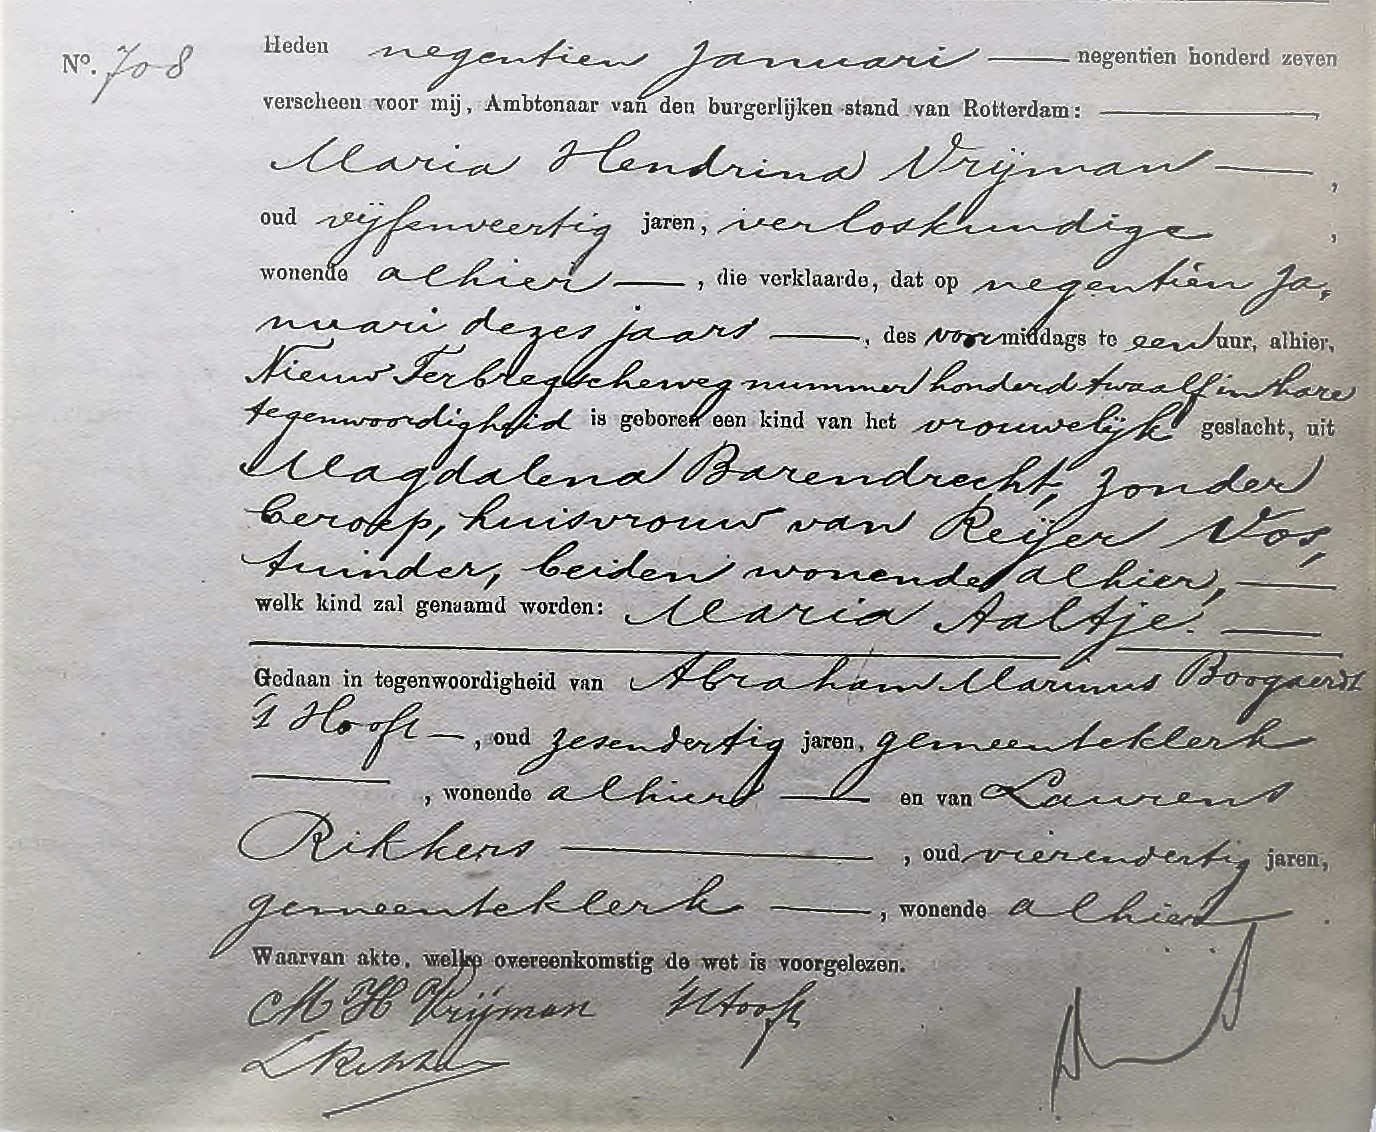 N°. 708
Heden negentien Januari — negentien honderd zeven
verscheen voor mij, Ambtenaar van den burgerlijken stand van Rotterdam: —,
Maria Hendrina Vrijman —,
oud vijfenveertig jaren, verloskundige,
wonende alhier —, die verklaarde, dat op negentien Ja,
nuari dezes jaars —, des voormiddags te een uur, alhier,
Nieuw Terbregscheweg nummer honderd twaalf in hare
tegenwoordigheid is geboren een kind van het vrouwelijk geslacht, uit
Magdalena Barendrecht, zonder
beroep, huisvrouw van Reijer Vos,
tuinder, beiden wonende alhier, —
welk kind zal genaamd worden: Maria Aaltje. —
Gedaan in tegenwoordigheid van Abraham Marinus Boogaerdt
't Hooft —, oud zesendertig jaren, gemeenteklerk
—, wonende alhier — en van Laurens
Rikkers —, oud vierendertig jaren,
gemeenteklerk —, wonende alhier.
Waarvan akte, welke overeenkomstig de wet is voorgelezen.
M H Vrijman 't Hooft
L Rikkers